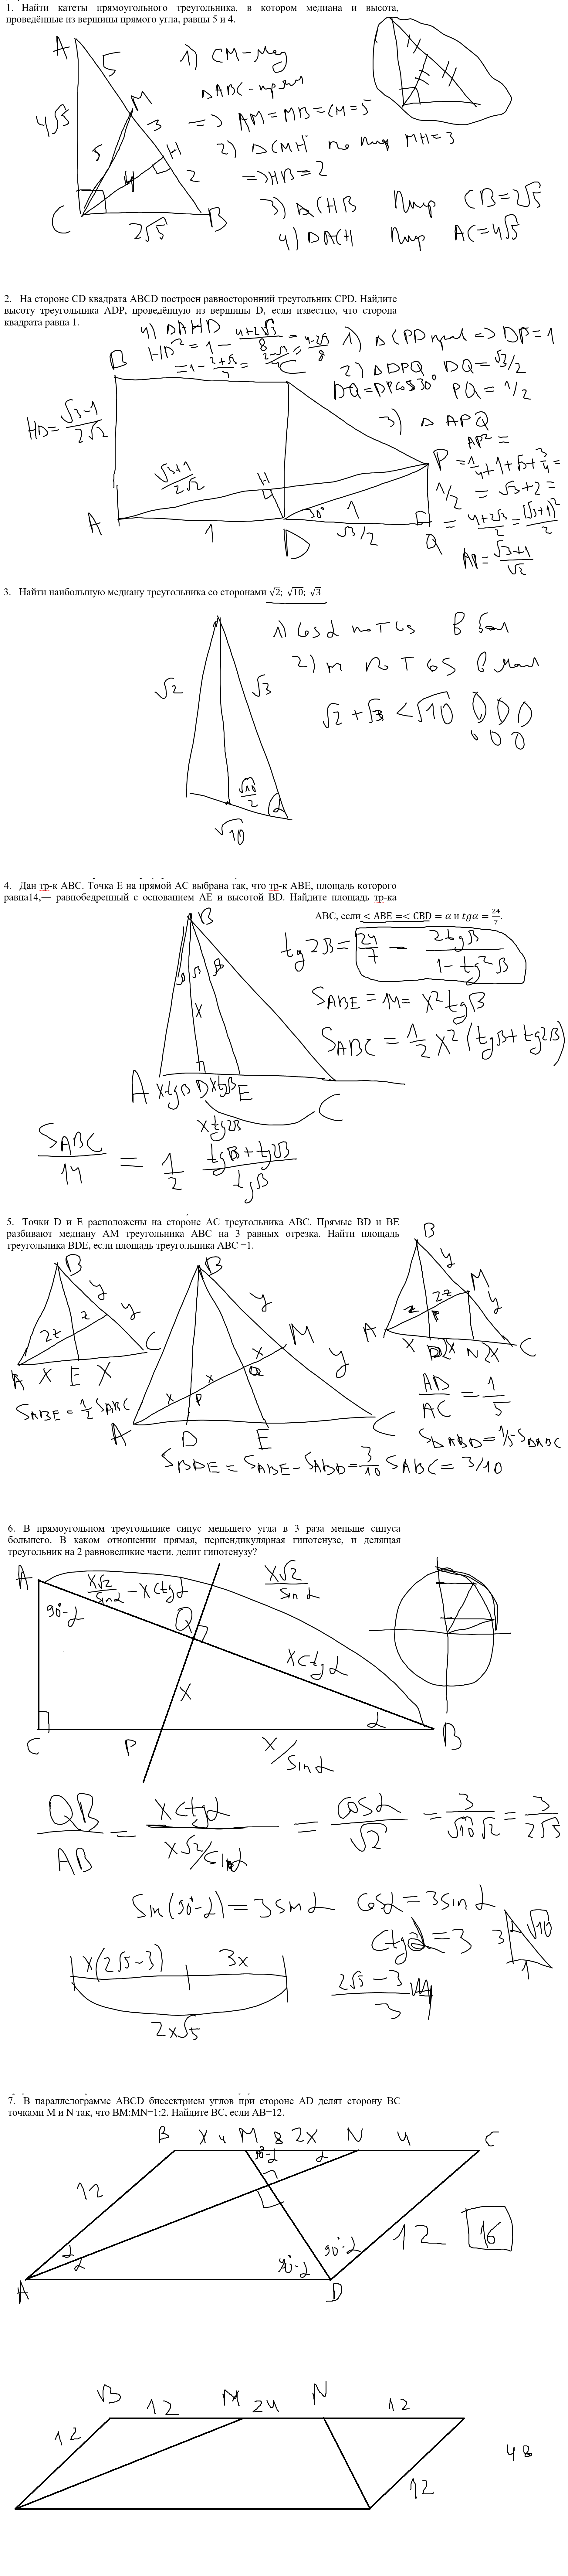 1. Найти катеты прямоугольного треугольника, в котором медиана и высота,
проведённые из вершины прямого угла, равны 5 и 4.
A
5
M
3
H
4√5
5
4
2
C
2√5
B
1) CM-мед
ΔABC-прям
=> AM=MB=CM=5
2) ΔCMH по пир MH=3
=>HB=2
3) ΔCHB пир CB=2√5
4) ΔACH пир AC=4√5
2. На стороне CD квадрата ABCD построен равносторонний треугольник CPD. Найдите
высоту треугольника ADP, проведённую из вершины D, если известно, что сторона
квадрата равна 1.
4) ΔAHD
HD²=1-(4+2√3)/8=(4-2√3)/8
=1-(2+√3)/4=(2-√3)/4
1) ΔCPD прав => DP=1
2) ΔDPQ DQ=√3/2
DQ=DPcos30° PQ=1/2
3) ΔAPQ
AP²=
=1/4+1+√3+3/4=
=√3+2=
=(4+2√3)/2=(√3+1)²/2
AP=(√3+1)/√2
HD=(√3-1)/(2√2)
B
C
(√3+1)/(2√2)
H
P
1/2
A
1
D
30°
1
√3/2
Q
3. Найти наибольшую медиану треугольника со сторонами √2; √10; √3
√2
√3
√10/2
α
√10
1) cosα по T cos в бол
2) m по T cos в мал
√2+√3<√10
4. Дан тр-к ABC. Точка E на прямой AC выбрана так, что тр-к ABE, площадь которого
равна14,— равнобедренный с основанием AE и высотой BD. Найдите площадь тр-ка
ABC, если < ABE =< CBD = α и tgα = 24/7.
B
β
β
x
A
xtgβ
D
xtgβ
E
C
xtg2β
tg2β=24/7=2tgβ/(1-tg²β)
S ABE=14=x²tgβ
S ABC=1/2x²(tgβ+tg2β)
S ABC/14=1/2 (tgβ+tg2β)/tgβ
5. Точки D и E расположены на стороне AC треугольника ABC. Прямые BD и BE
разбивают медиану AM треугольника ABC на 3 равных отрезка. Найти площадь
треугольника BDE, если площадь треугольника ABC =1.
B
y
z
y
2z
A
x
E
x
C
S ABE=1/2 S ABC
B
y
M
x
Q
y
x
P
x
A
D
E
C
S BDE=S ABE-S ABD=3/10 S ABC=3/10
B
y
M
2z
y
z
P
A
x
D
2x
N
2x
C
AD/AC=1/5
S ΔABD=1/5 S ΔABC
6. В прямоугольном треугольнике синус меньшего угла в 3 раза меньше синуса
большего. В каком отношении прямая, перпендикулярная гипотенузе, и делящая
треугольник на 2 равновеликие части, делит гипотенузу?
A
x√2/sinα-xctgα
x√2/sinα
90°-α
Q
xctgα
x
α
C
P
x/sinα
B
QB/AB=xctgα/(x√2/sinα)=cosα/√2=3/(√10√2)=3/(2√5)
Sin(90°-α)=3sinα cosα=3sinα
ctgα=3
3
√10
1
x(2√5-3)
3x
2x√5
(2√5-3)/3
7. В параллелограмме ABCD биссектрисы углов при стороне AD делят сторону BC
точками M и N так, что BM:MN=1:2. Найдите BC, если AB=12.
B x 4 M 8 2x N 4 C
90°-α
α
12
α
α
90°-α
90°-α
12
16
A
D
B 12 M 24 N 12
12
12
48